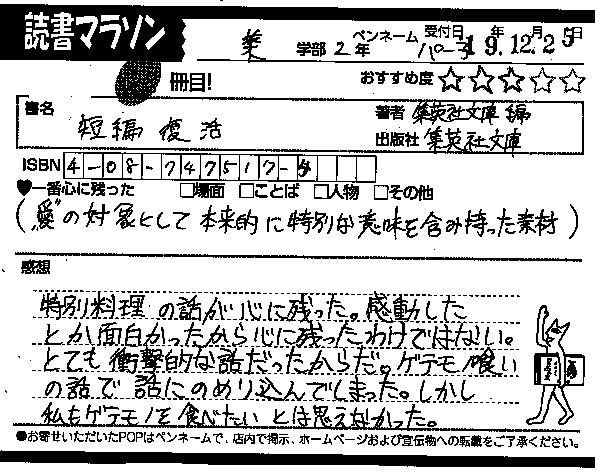 読書マラソン
業 学部 2年 ペンネーム パーラ 受付日 19年12月25日
冊目! おすすめ度 ☆☆☆☆☆
書名 短編復活
著者 集英社文庫 編
出版社 集英社文庫
ISBN 4-08-747517-
♥一番心に残った □場面 □ことば □人物 □その他
(“愛”の対象として本来的に特別な意味を含み持った素材)
感想
特別料理の話が心に残った。感動した
とか面白かったから心に残ったわけではない。
とても衝撃的な話だったからだ。ゲテモノ喰い
の話で話にのめり込んでしまった。しかし
私もゲテモノを食べたいとは思えなかった。
●お寄せいただいたPOPはペンネームで、店内で掲示、ホームページおよび宣伝物への転載をご了承ください。